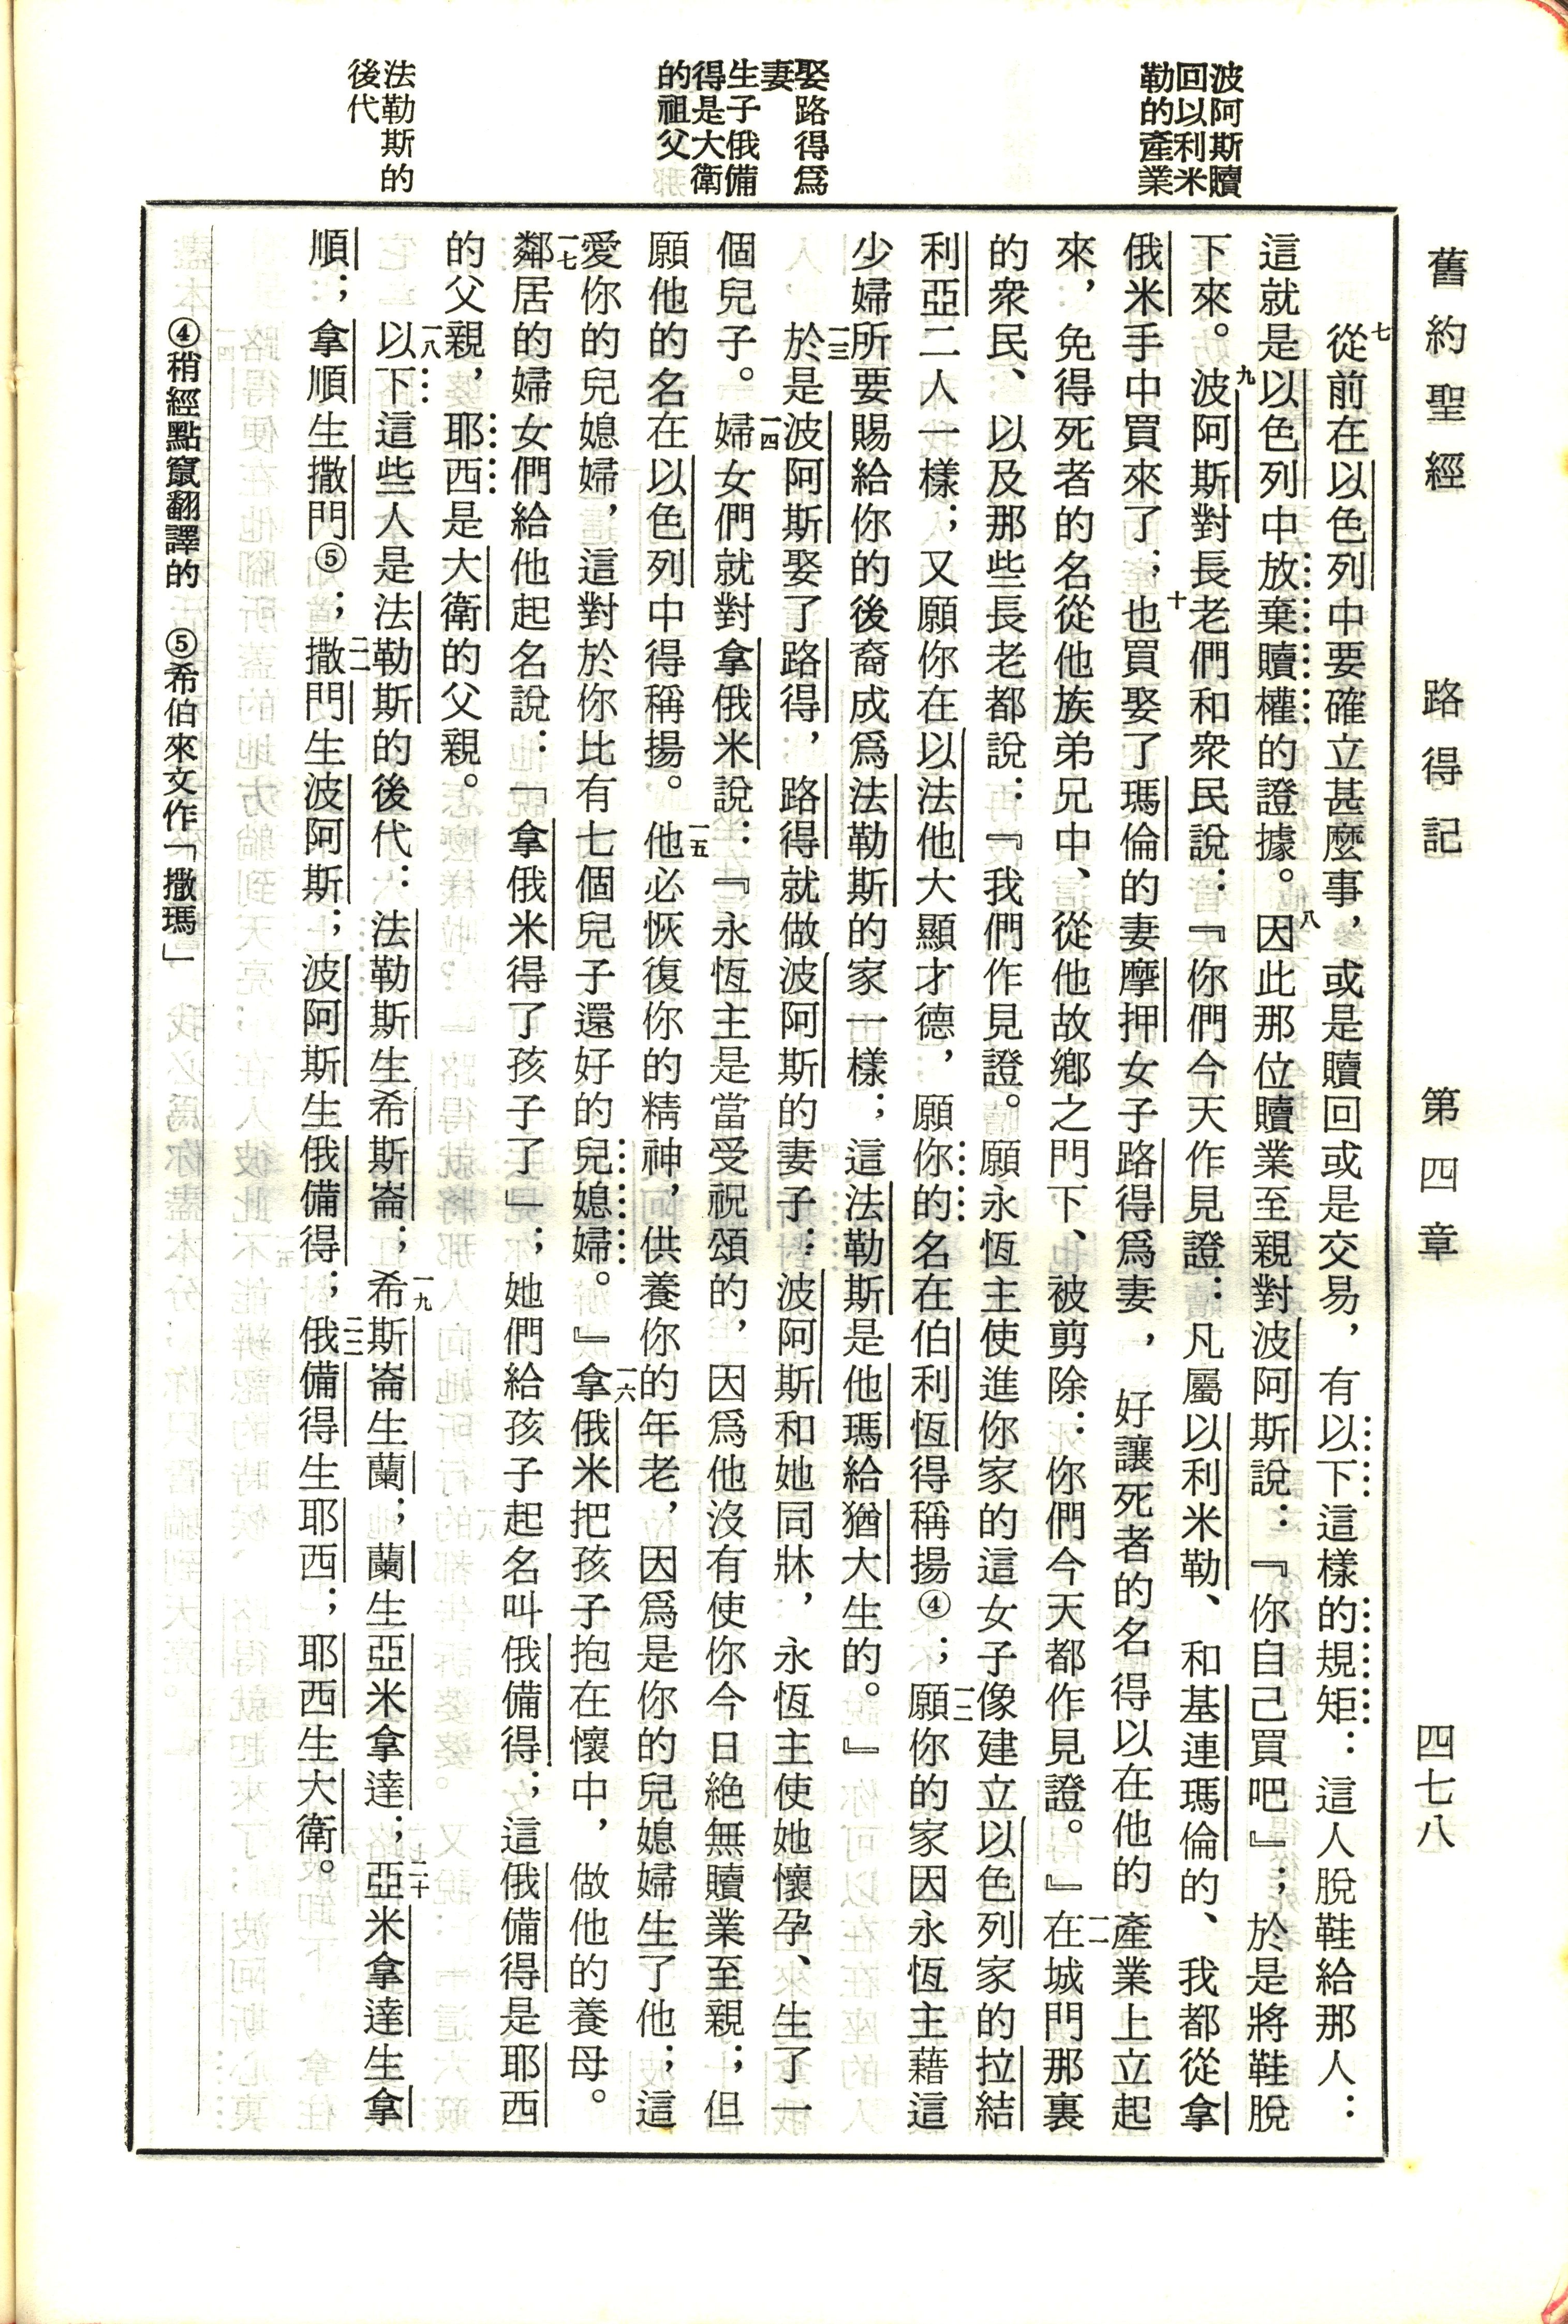 舊約聖經 路得記 第四章 四七八
波阿斯贖
回以利米
勒的產業
娶路得爲
妻
生子俄備
得是大衛
的祖父
法勒斯的
後代
七從前在以色列中要確立甚麼事，或是贖回或是交易，有以下這樣的規矩：這人脫鞋給那人：
這就是以色列中放棄贖權的證據。八因此那位贖業至親對波阿斯說：『你自己買吧』；於是將鞋脫
下來。九波阿斯對長老們和衆民說：『你們今天作見證：凡屬以利米勒、和基連瑪倫的、我都從拿
俄米手中買來了；十也買娶了瑪倫的妻摩押女子路得爲妻，好讓死者的名得以在他的產業上立起
來，免得死者的名從他族弟兄中、從他故鄉之門下、被剪除：你們今天都作見證。』一一在城門那裏
的衆民、以及那些長老都說：『我們作見證。願永恆主使進你家的這女子像建立以色列家的拉結
利亞二人一樣；又願你在以法他大顯才德，願你的名在伯利恆得稱揚④；一二願你的家因永恆主藉這
少婦所要賜給你的後裔成爲法勒斯的家一樣；這法勒斯是他瑪給猶大生的。』
一三於是波阿斯娶了路得，路得就做波阿斯的妻子：波阿斯和她同牀，永恆主使她懷孕、生了一
個兒子。一四婦女們就對拿俄米說：『永恆主是當受祝頌的，因爲他沒有使你今日絕無贖業至親；但
願他的名在以色列中得稱揚。一五他必恢復你的精神，供養你的年老，因爲是你的兒媳婦生了他；這
愛你的兒媳婦，這對於你比有七個兒子還好的兒媳婦。』一六拿俄米把孩子抱在懷中，做他的養母。
一七鄰居的婦女們給他起名說：「拿俄米得了孩子了」；她們給孩子起名叫俄備得；這俄備得是耶西
的父親，耶西是大衛的父親。
一八以下這些人是法勒斯的後代：法勒斯生希斯崙；一九希斯崙生蘭；蘭生亞米拿達；二十亞米拿達生拿
順；拿順生撒門⑤；二一撒門生波阿斯；波阿斯生俄備得；二二俄備得生耶西；耶西生大衛。
④稍經點竄翻譯的 ⑤希伯來文作「撒瑪」